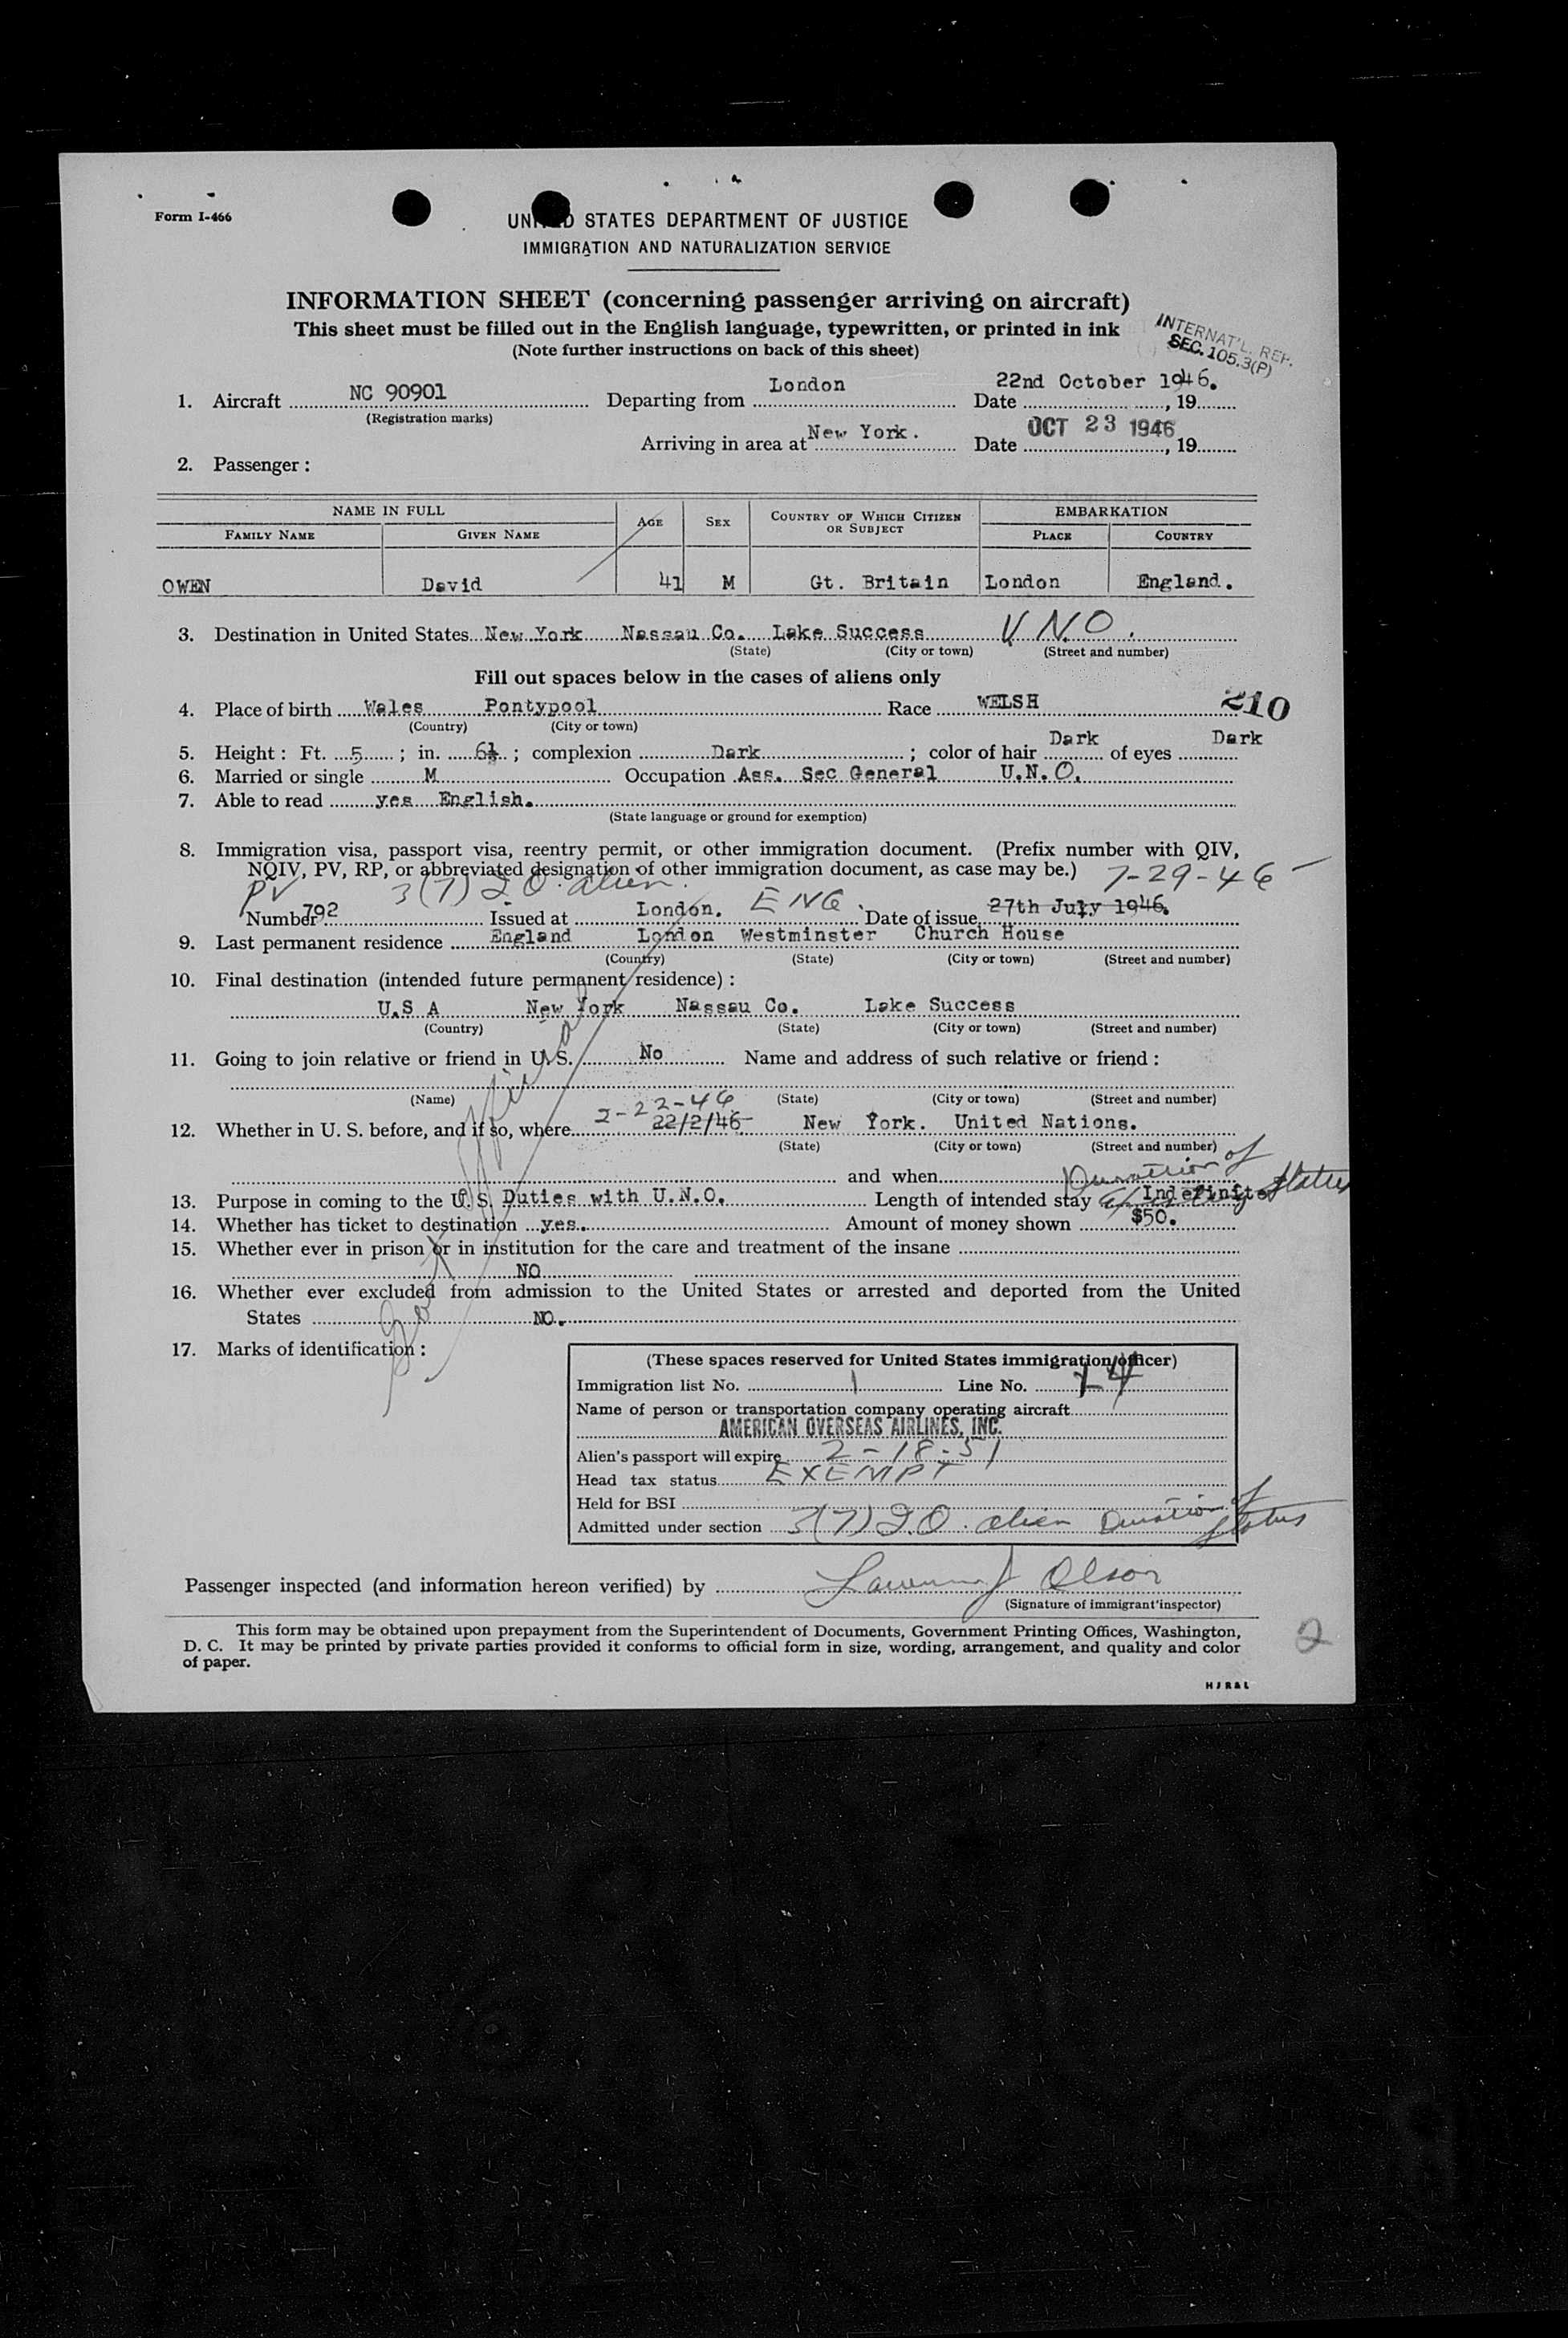 Form I-466
UNITED STATES DEPARTMENT OF JUSTICE
IMMIGRATION AND NATURALIZATION SERVICE
INFORMATION SHEET (concerning passenger arriving on aircraft)
This sheet must be filled out in the English language, typewritten, or printed in ink
(Note further instructions on back of this sheet)
INTERNAT'L. REP.
SEC. 105.3(P)
1. Aircraft NC 90901 Departing from London Date 22nd October 1946. , 19
(Registration marks)
Arriving in area at New York. Date OCT 23 1946 , 19
2. Passenger :
NAME IN FULL AGE SEX COUNTRY OF WHICH CITIZEN OR SUBJECT EMBARKATION
FAMILY NAME GIVEN NAME PLACE COUNTRY
OWEN David 41 M Gt. Britain London England.
3. Destination in United States New York Nassau Co. Lake Success U.N.O.
(State) (City or town) (Street and number)
Fill out spaces below in the cases of aliens only
4. Place of birth Wales Pontypool Race WELSH 210
(Country) (City or town)
5. Height : Ft. 5 ; in. 6½ ; complexion Dark ; color of hair Dark of eyes Dark
6. Married or single M Occupation Ass. Sec General U.N.O.
7. Able to read yes English.
(State language or ground for exemption)
8. Immigration visa, passport visa, reentry permit, or other immigration document. (Prefix number with QIV,
NQIV, PV, RP, or abbreviated designation of other immigration document, as case may be.)
PV 3(7) I.O. alien. 7-29-46
Number 792 Issued at London. ENG. Date of issue 27th July 1946.
9. Last permanent residence England London Westminster Church House
(Country) (State) (City or town) (Street and number)
10. Final destination (intended future permanent residence) :
U.S A New York Nassau Co. Lake Success
(Country) (State) (City or town) (Street and number)
11. Going to join relative or friend in U.S. No Name and address of such relative or friend :
(Name) (State) (City or town) (Street and number)
2-22-46
12. Whether in U. S. before, and if so, where 22/2/46 New York. United Nations.
(State) (City or town) (Street and number)
and when
Duration of Status
13. Purpose in coming to the U.S. Duties with U.N.O. Length of intended stay Indefinite
14. Whether has ticket to destination yes. Amount of money shown $50.
15. Whether ever in prison or in institution for the care and treatment of the insane
NO
16. Whether ever excluded from admission to the United States or arrested and deported from the United
States NO.
17. Marks of identification :
(These spaces reserved for United States immigration officer)
Immigration list No. 1 Line No. 14
Name of person or transportation company operating aircraft
AMERICAN OVERSEAS AIRLINES, INC.
Alien's passport will expire 2-18-51
Head tax status EXEMPT
Held for BSI
Admitted under section 3(7) I.O. alien Duration of Status
Passenger inspected (and information hereon verified) by Lawrence J Olson
(Signature of immigrant inspector)
This form may be obtained upon prepayment from the Superintendent of Documents, Government Printing Offices, Washington,
D. C. It may be printed by private parties provided it conforms to official form in size, wording, arrangement, and quality and color
of paper.
2
H J R & L